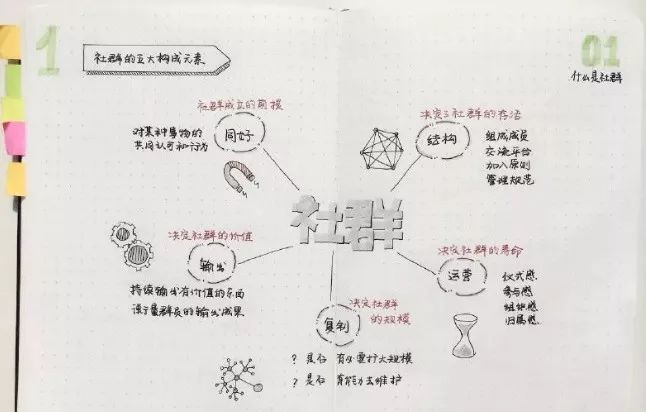 1
社群的五大构成元素
01
什么是社群
社群成立的前提
同好
对某种事物的
共同认可和行为
决定了社群的存活
结构
组成成员
交流平台
加入原则
管理规范
社群
决定社群的价值
输出
持续输出有价值的东西
群员的输出成果
决定社群的寿命
运营
仪式感
参与感
组织感
归属感
决定社群
的规模
复制
? 是否 有必要扩大规模
? 是否 有能力去维护